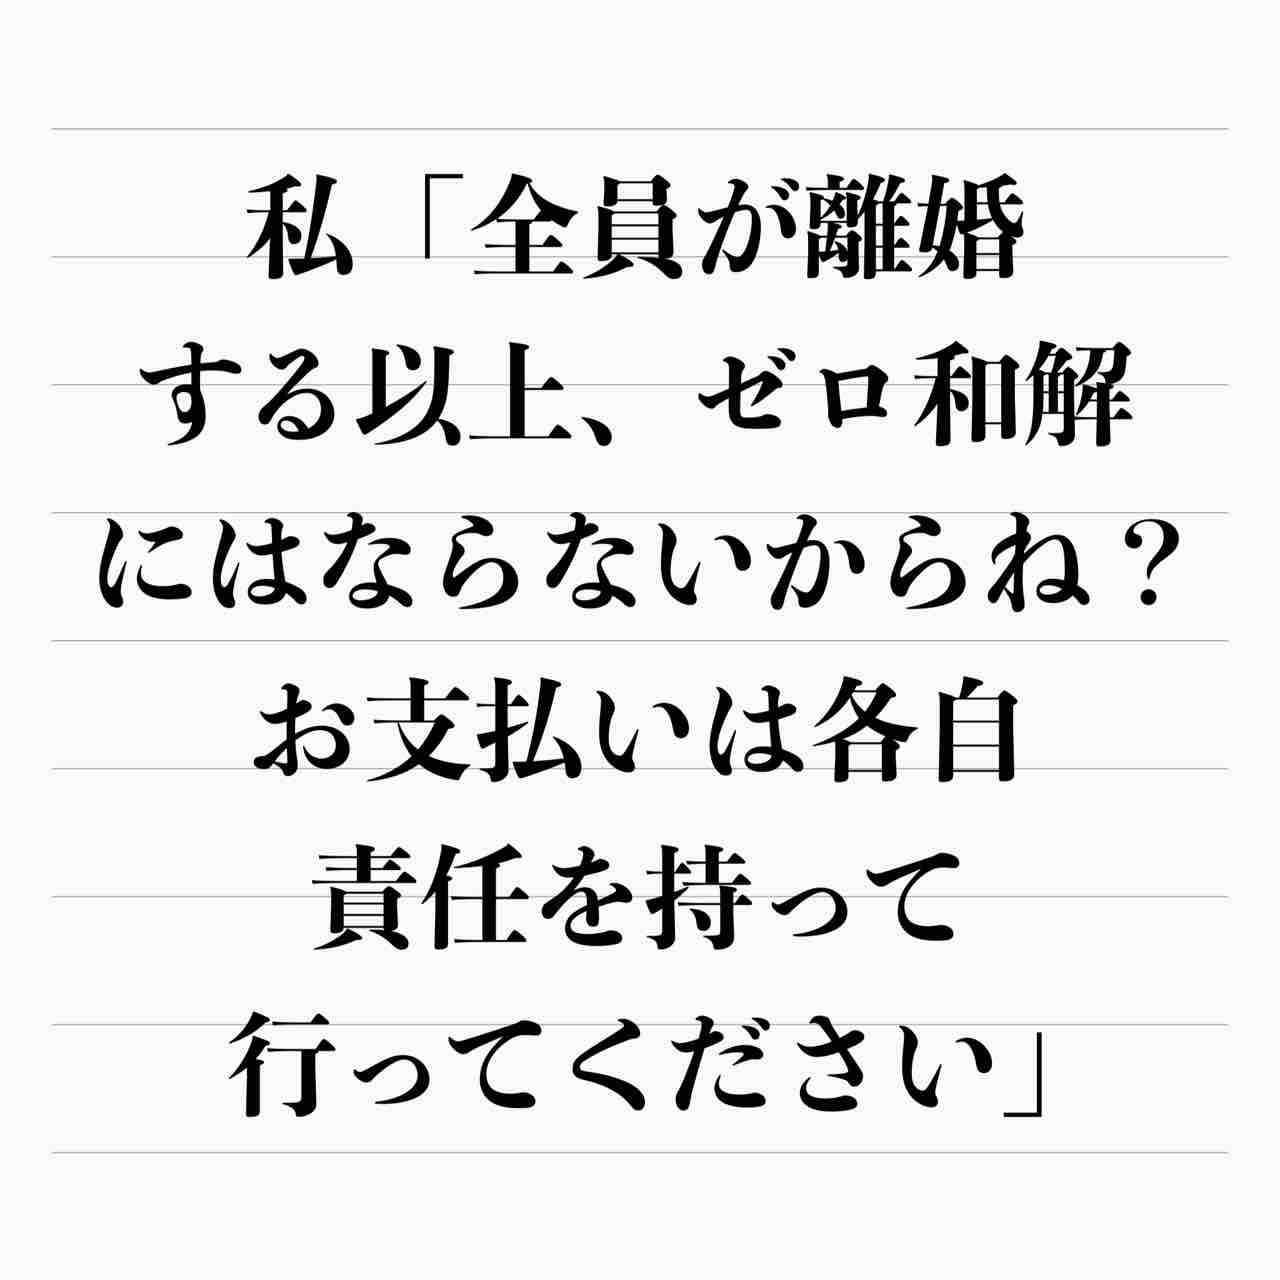 私「全員が離婚
する以上、ゼロ和解
にはならないからね？
お支払いは各自
責任を持って
行ってください」